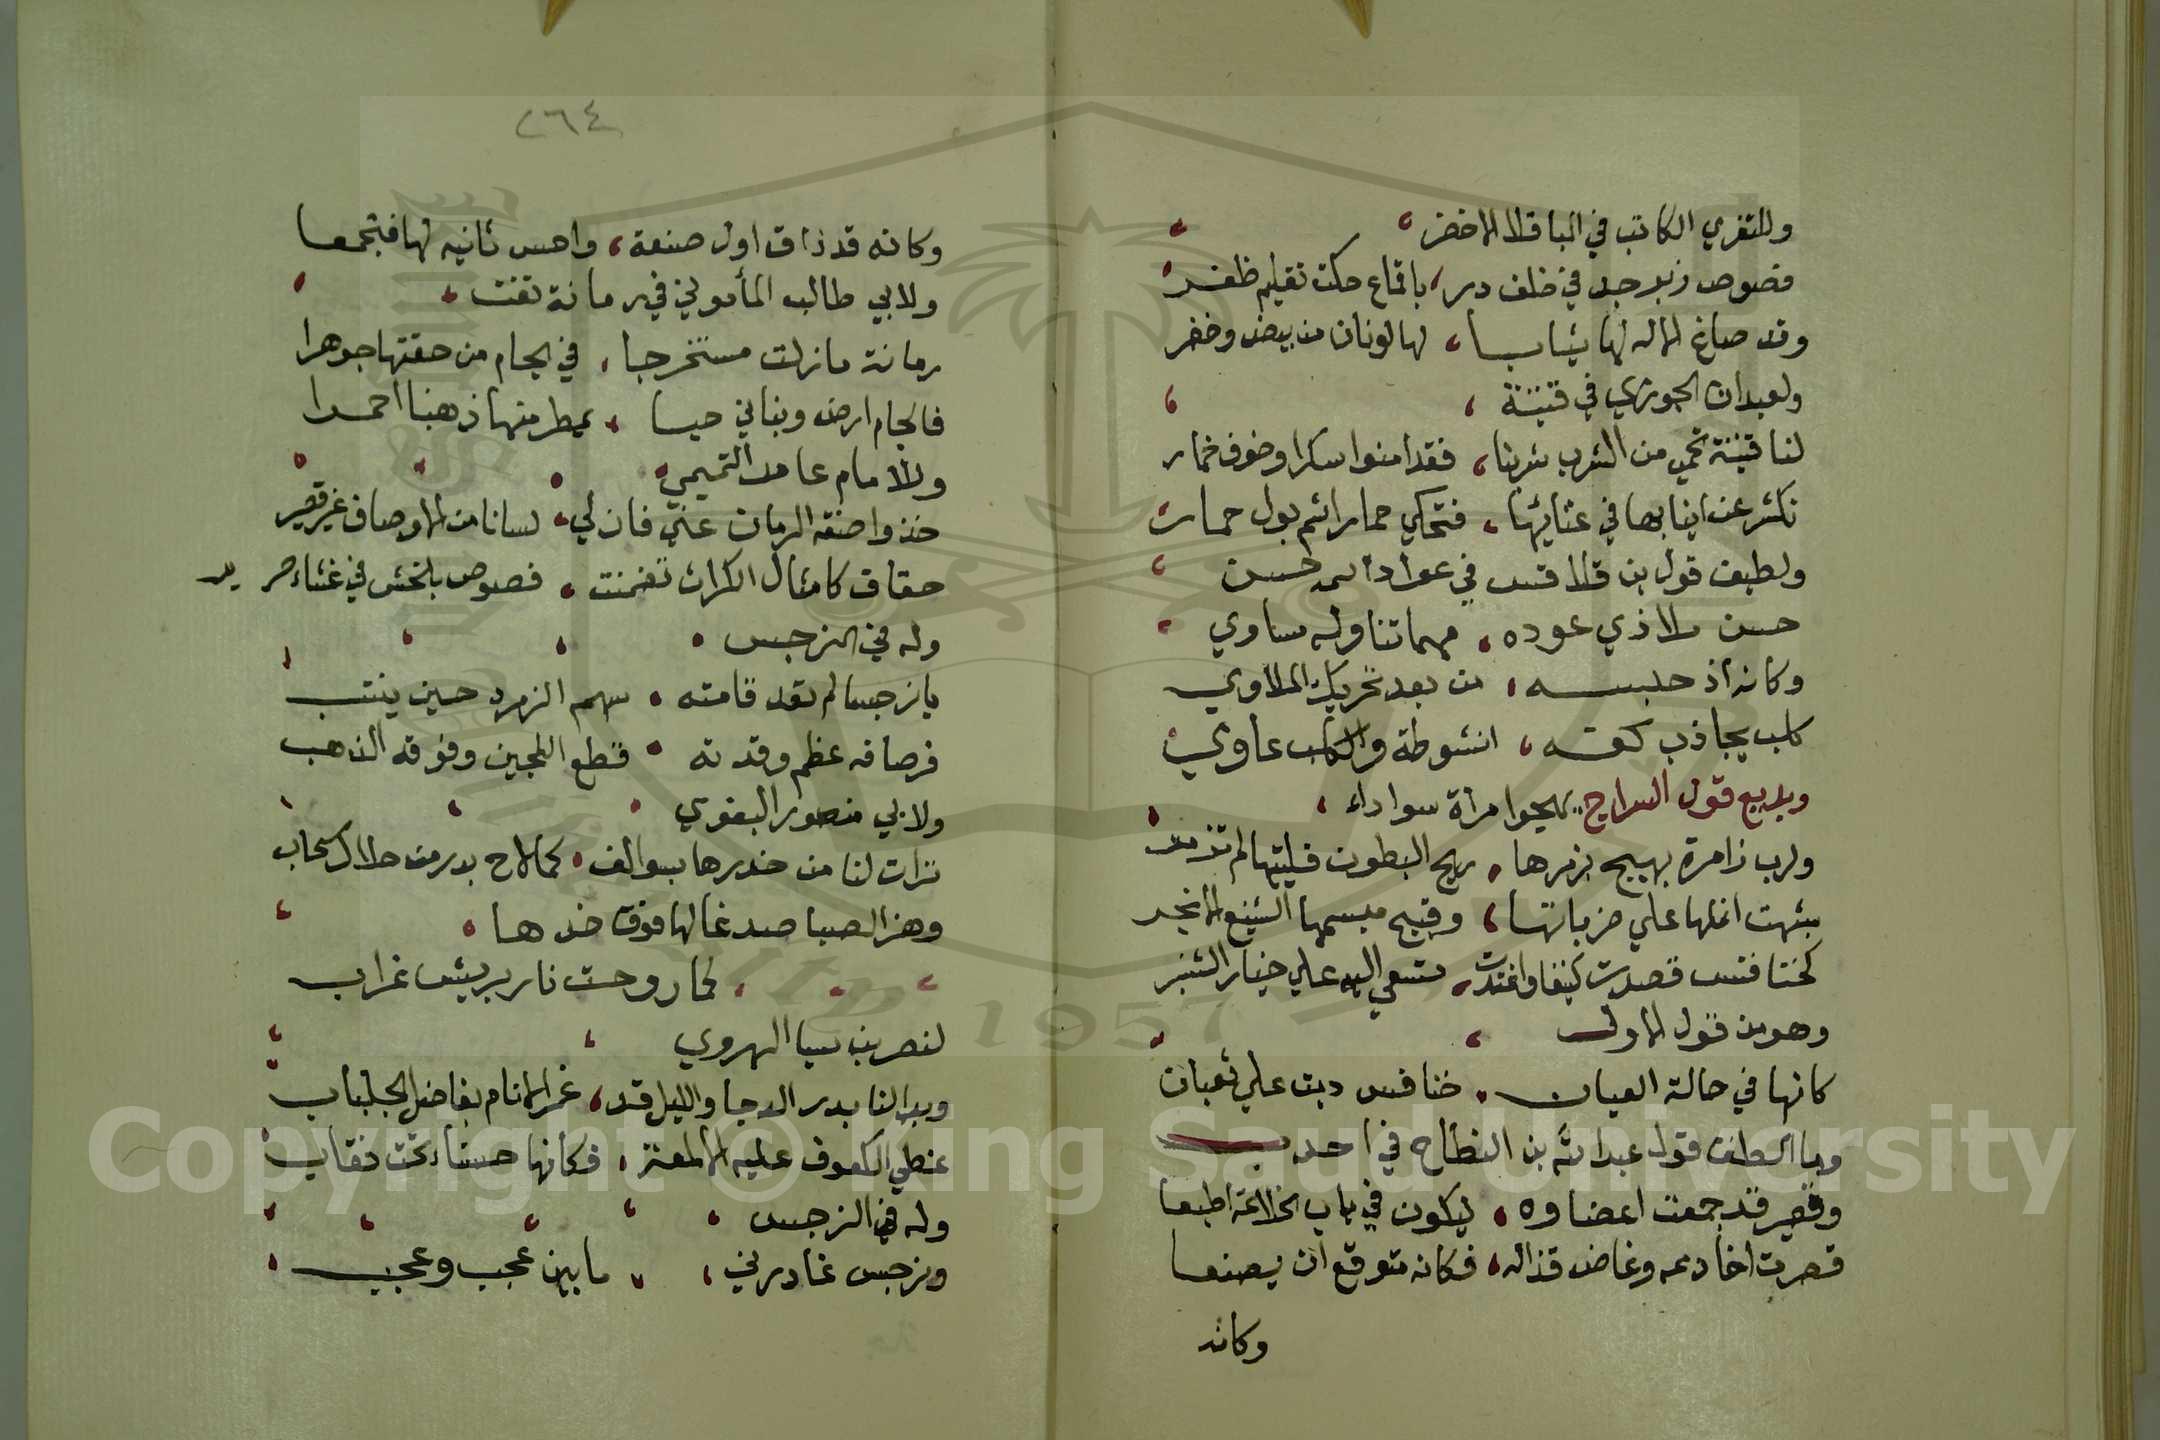 وللتغري الكاتب في الباقلا الاخضر
فصوص زبرجد في خلف در، باقماع حكت تقليم ظفر
وقد صاغ الاله لها ثيابا، لها لونان من بيض وخضر
ولعبدان الجوزي في قنينة
لنا قينة تحمي من الشرب شربنا، فقد امنوا سكرا وخوف خمار
تكشر عن انيابها في غنائها، فتحكي حمارا شم بول حمار
ولطيف قول بن قلاقس في عواد اسمه حسن
حسن ملاذي عوده، مهما تناوله مساوي
وكانه اذ جسه، من بعد تحريك الملاوي
كلب يجاذب كفه، انشوطة والكلب عاوي
وبديع قول السراج يهجوا مراة سوداء
ولرب زامرة يهيج بزمرها، ريح البطون فليتها لم تزمر
شبهت انملها علي ضرباتها، وقبيح مبسمها الشنيع الابخر
كخنافس قصدت كنيفا واغتدت، تسعي اليه علي خيار الشنبر
وهو من قول الاول
كانها في حالة العيان، خنافس دبت علي ثعبان
وما الطف قول عبد الله بن النطاح في احدب
وقصير قد جمعت اعضاوه، ليكون في باب الخلاعة اطبعا
قصرت اخادعه وغاض قذاله، فكانه متوقع ان يصفعا
وكانه
٢٦٤
وكانه قد ذاق اول صفعة، واحس ثانيه لها فتجمعا
ولابي طالب المأموني في رمانة تفتت
رمانة مازلت مستخرجا، في الجام من حقتها جوهرا
فالجام ارض وبناني حيا، يمطر منها ذهبا احمرا
وللامام عامد التميمي
خذوا صفة الرمان عني فان لي، لسانا من الاوصاف غير قصير
حقاق كامثال الكرات تضمنت، فصوص بلخش في غشاء حرير
وله في النرجس
يا نرجسا لم تعد قامته، سهم الزمرد حين ينتسب
فرصافه عظم وقدته، قطع اللجين وفوقه الذهب
ولابي منصور البغوي
تراات لنا من خدرها بسوالف، كما لاح بدر من خلال سحاب
وهز الصبا صدغا لها فوق خدها
كما روحت نار بريش غراب
لنصر بن سيا الهروي
وبدا لنا بدر الدجا والليل قد، غمر الانام بفاضل الجلباب
غطي الكسوف عليه الا لمعة، فكانها حسناء تحت نقاب
وله في النرجس
ونرجس غادرني، ما بين عجب وعجب
Copyright © King Saud University
1957